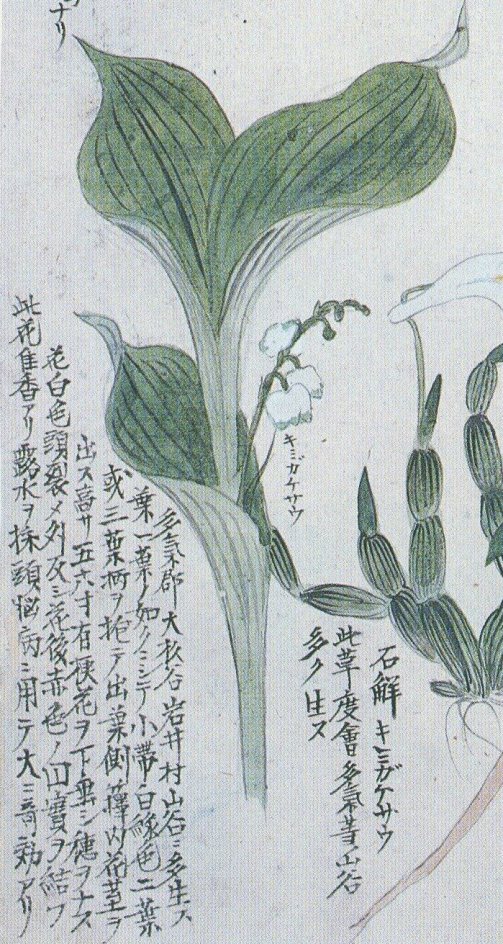 ナリ
石解 キミガケサウ
此草度會多氣等山谷
多ク生ス
キミガケサウ
多氣郡大杉谷岩井村山谷ニ多生ス
葉一葉ノ如クニシテ小帯白緑色二葉
或三葉柄ヲ抱テ出葉側籜内花茎ヲ
出ス高サ五六寸有梗花ヲ下垂シ穂ヲナス
花白色頭裂メ外反ミ花後赤色ノ円實ヲ結フ
此花佳香アリ露水ヲ採頭悩病ニ用テ大ニ奇効アリ